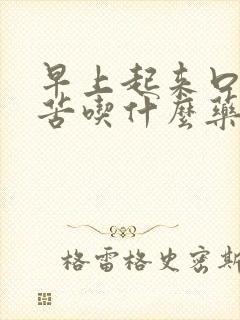 早上起来口
苦喫什麼藥
格雷格史密斯